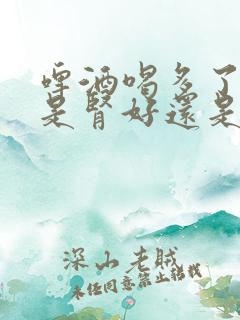 啤酒喝多了
是肾好还是
深山老贼
未经同意禁止转载